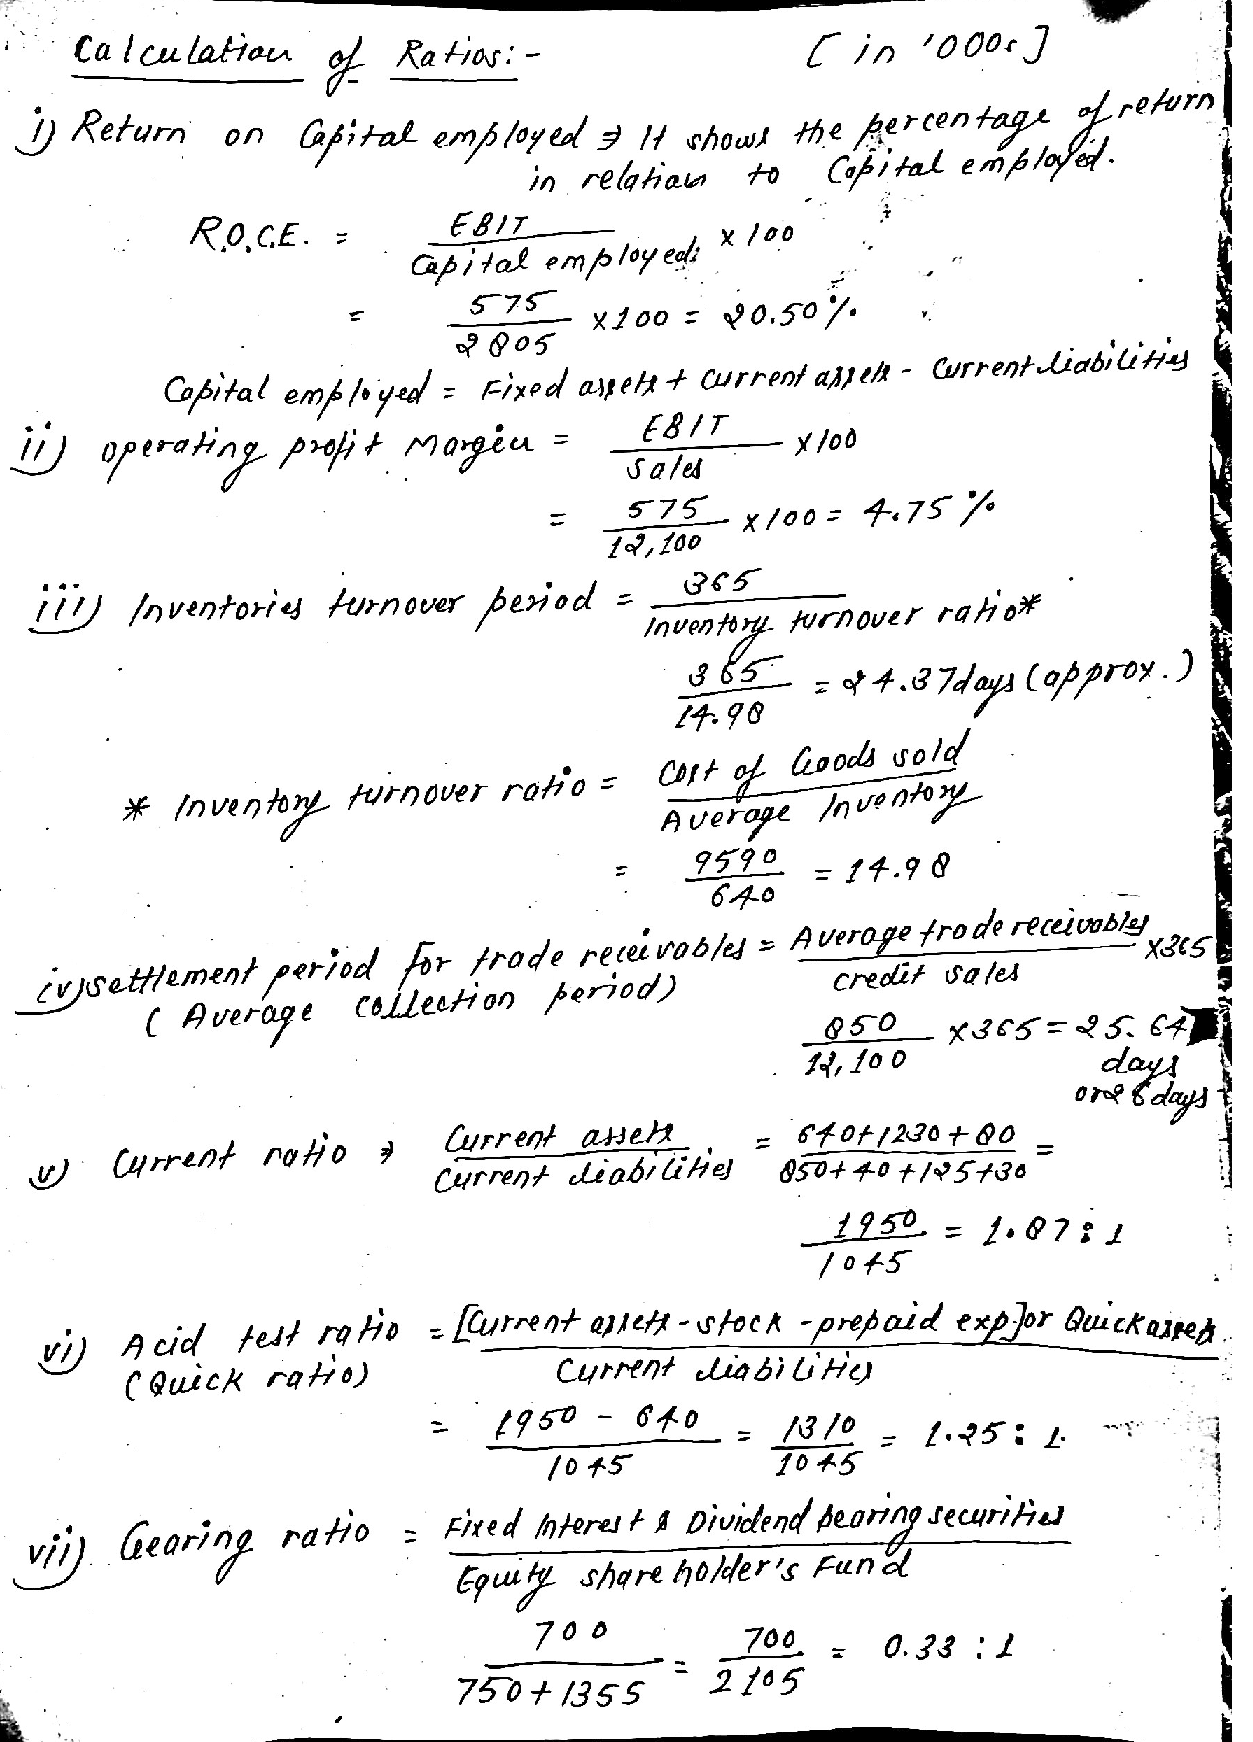 Calculation of Ratios:- [in '000s]
i) Return on Capital employed ⇒ It shows the percentage of return
in relation to Capital employed.
R.O.C.E. = EBIT / Capital employed × 100
= 575 / 2805 ×100 = 20.50%.
Capital employed = Fixed assets + Current assets - Current liabilities
ii) Operating profit Margin = EBIT / Sales ×100
= 575 / 12,100 ×100 = 4.75%
iii) Inventories turnover period = 365 / Inventory turnover ratio*
365 / 14.98 = 24.37days (approx.)
* Inventory turnover ratio = Cost of Goods sold / Average Inventory
= 9590 / 640 = 14.98
iv) settlement period for trade receivables = Average trade receivables / credit sales ×365
( Average collection period)
850 / 12,100 ×365 = 25.64
days
or 26 days
v) Current ratio ⇒ Current assets / Current liabilities = 640+1230+80 / 850+40+125+30 =
1950 / 1045 = 1.87:1
vi) Acid test ratio = [Current assets - stock - prepaid exp] or Quick assets / Current liabilities
(Quick ratio)
= 1950 - 640 / 1045 = 1310 / 1045 = 1.25:1.
vii) Gearing ratio = Fixed Interest & Dividend bearing securities / Equity share holder's Fund
700 / 750+1355 = 700 / 2105 = 0.33:1